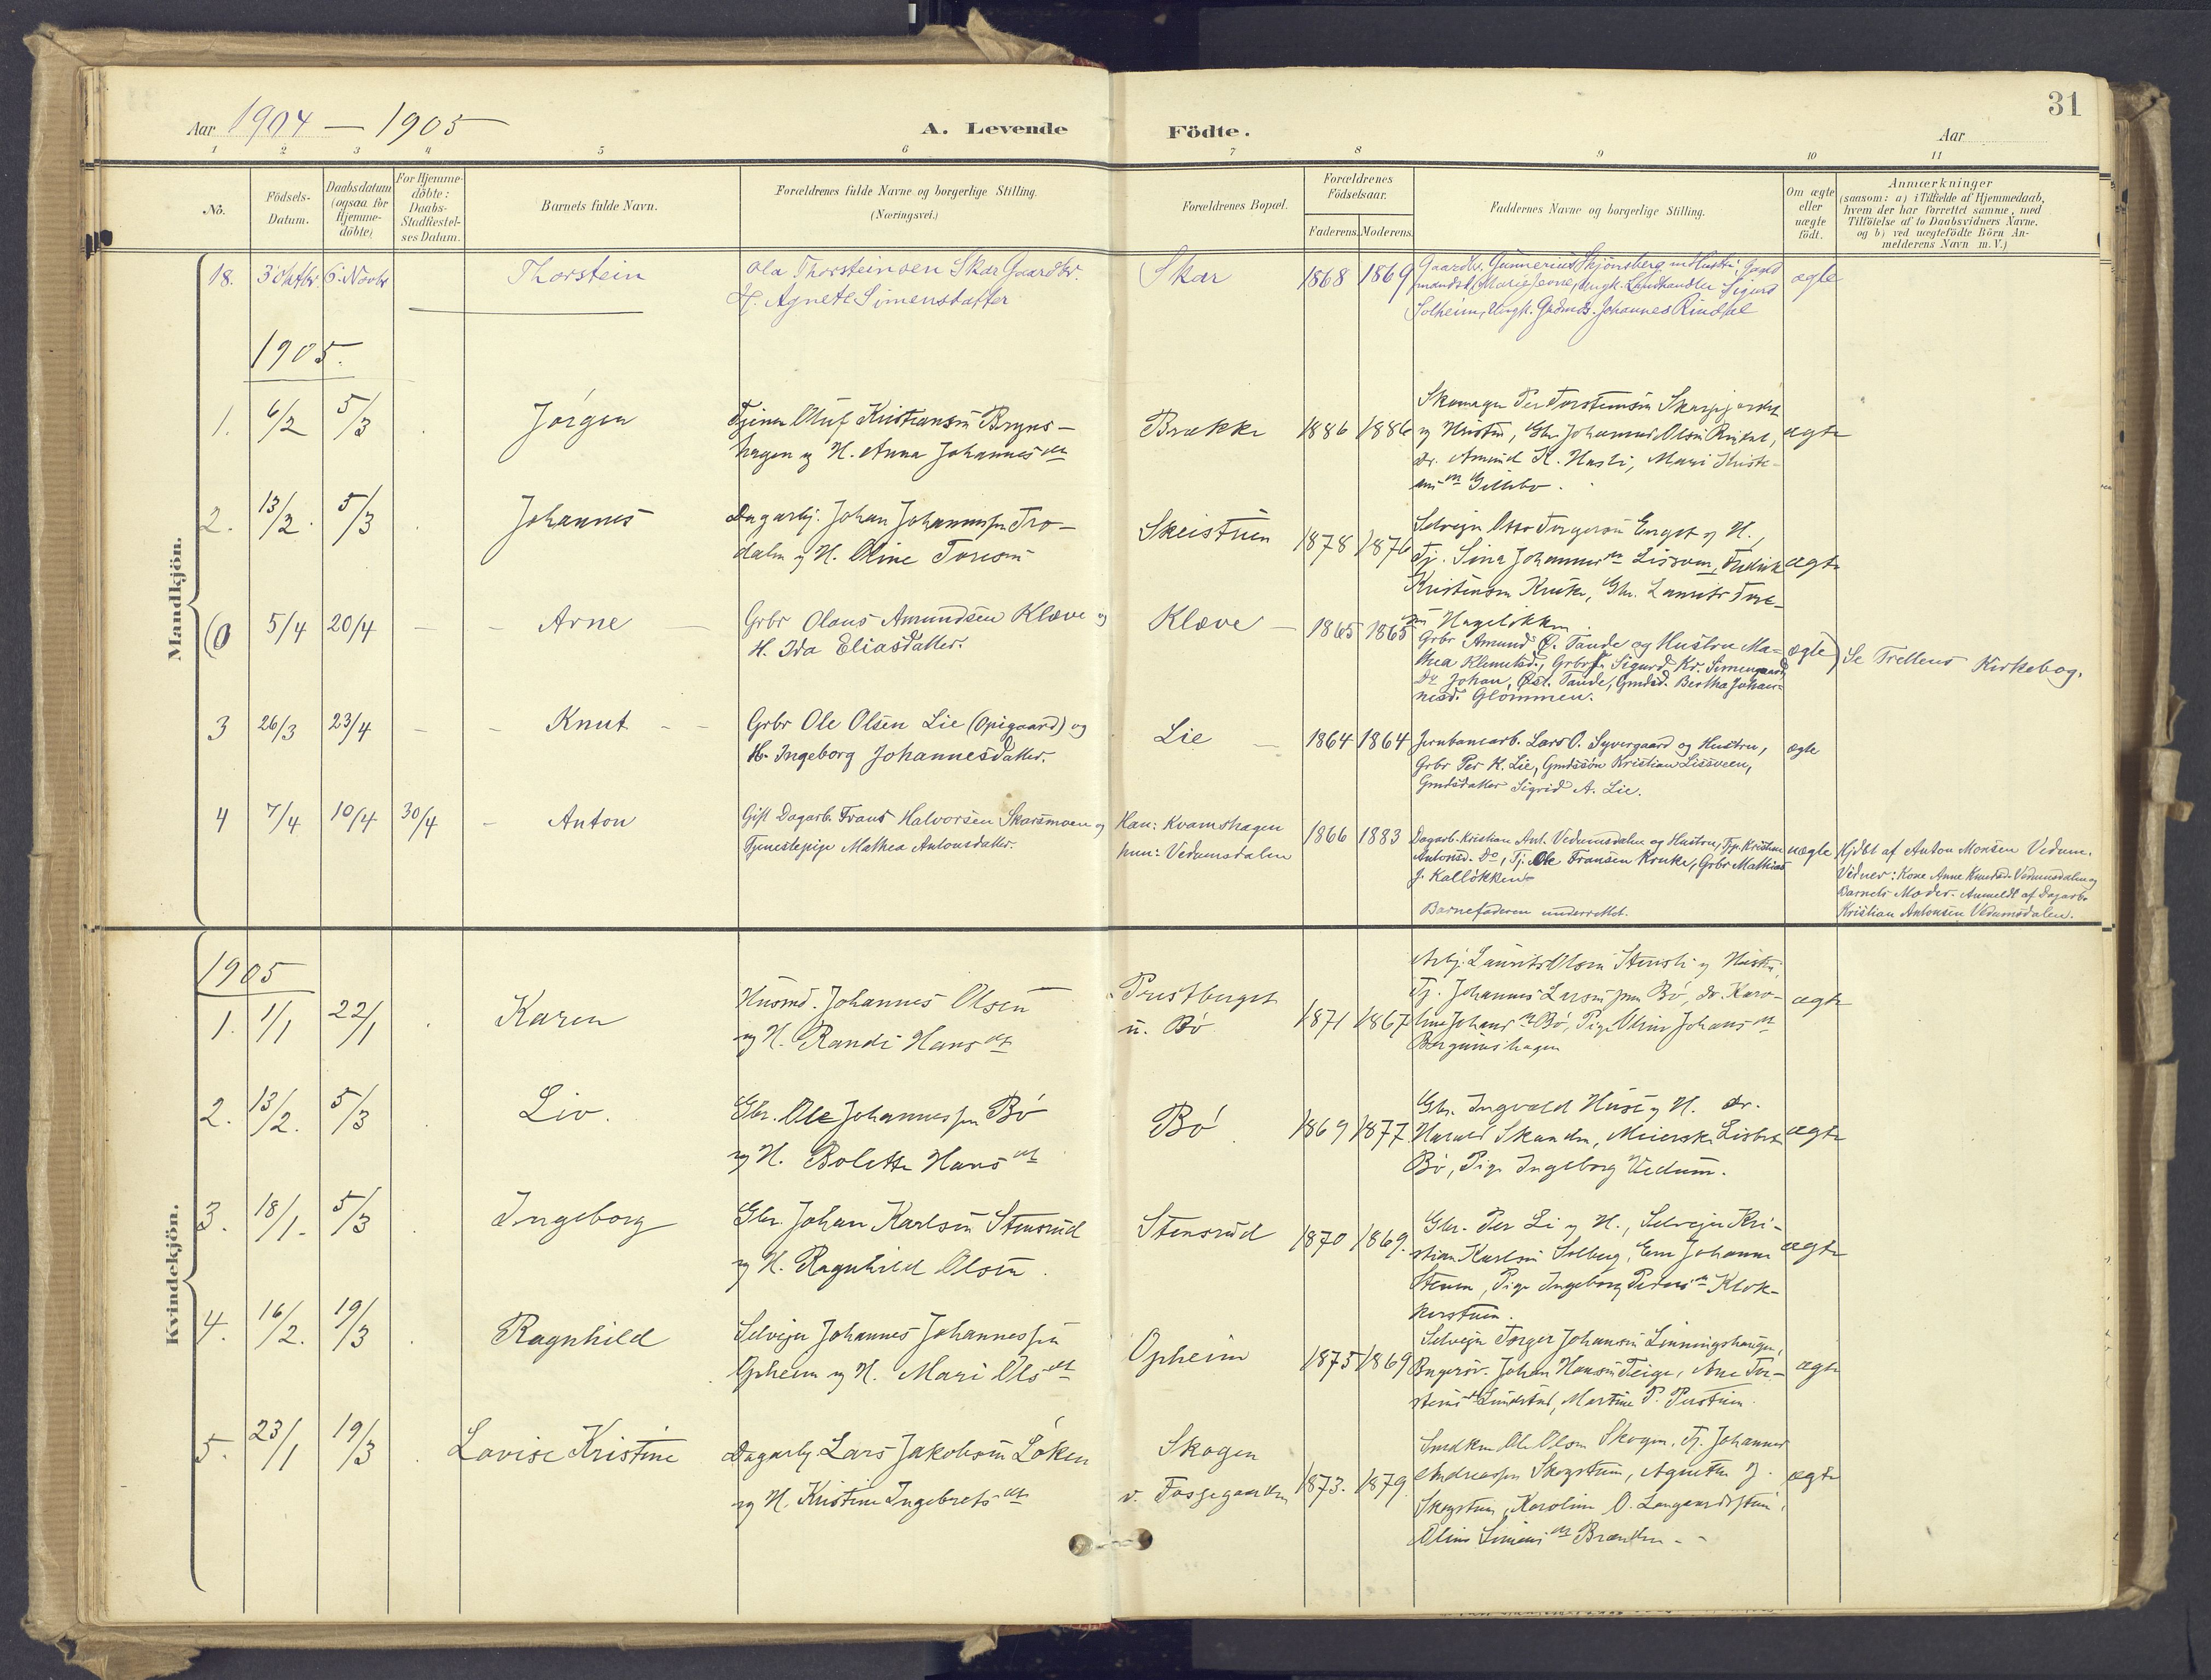 31
Aar 1904 — 1905 A. Levende Födte. Aar
1 2 3 4 5 6 7 8 9 10 11
No.
Födsels-
Datum.
Daabsdatum
(ogsaa for
Hjemme-
döbte)
For Hjemme-
döbte:
Daabs-
Stadfæstel-
ses Datum.
Barnets fulde Navn.
Forældrenes fulde Navne og borgerlige Stilling.
(Næringsvei.)
Forældrenes Bopæl.
Forældrenes
Födselsaar.
Faderens. Moderens.
Faddernes Navne og borgerlige Stilling.
Om ægte
eller
uægte
födt.
Anmærkninger
(saasom: a) i Tilfælde af Hjemmedaab,
hvem der har forrettet samme, med
Tilföielse af to Daabsvidners Navne.
og b) ved uægtefödte Börn An-
melderens Navn m. V.)
Mandkjön.
18. 3 Oktbr. 6. Novbr Thorstein
Ola Thorsteinsen Skar Gaardbr.
H. Agnete Simensdatter
Skar 1868 1869
Gaardbr. Gunnerius Skjönsberg m Hustru, Gaard
mandsd. Marie Ungk. Landhandler Sigurd
Solheim, Ungk. Gdmds. Johannes Rindal
ægte
1905.
1. 6/2 5/3 Jørgen
Tjener Oluf Kristiansen Bryns-
hagen og H. Anna Johannesdtr
Brække 1886 1886
Skomager Per Torstensen
og Hustru, Gbr. Johannes Olsen
Dr. Amund K. Hasli, Mari Krist-
Gillebo.
ægte
2. 13/2. 5/3 Johannes
Dagarbj. Johan Johannessen Tro-
dalen og H. Oline Toresen
Skeistuen 1878 1876
Selveier Otto Torgersen Enget og H.,
Tj. Sina Johannesdtr Lissveen, Fredrik
Kristensen Kruke, Gbr. Laurits Tore-
sen Hageløkken
ægte
(0 5/4 20/4 – – Arne –
Grbr Olaus Amundsen Klæve og
H. Ida Eliasdatter.
Klæve – 1865 1865
Grbr Amund Ø. Tande og Hustru Ma-
thea Klemetsd., Grbrs. Sigurd Kr. Simengaard,
Do Johan Øst. Tande, Gmdsd. Bertha Johan-
nesd. Glömmen.
ægte) Se Trettens Kirkebog.
3 26/3 23/4 – – Knut – –
Grbr Ole Olsen Lie (Opigaard) og
H. Ingeborg Johannesdatter.
Lie – 1864 1864
Jernbanearb. Lars O. Syvergaard og Hustru,
Grbr Per K. Lie, Gmdssön Kristian Lissveen,
Gmdsdatter Sigrid A. Lie.
ægte
4 7/4 10/4 30/4 – Anton
Gift Dagarb. Frans Halvorsen Skarsmoen og
Tjenestepige Mathea Antonsdatter.
Han: Kvamshagen
hun: Vedumsdalen
1866 1883
Dagarb. Kristian Ant. Vedumsdalen og Hustru, Tjp. Kristine
Antonsd. Do, Tj. Ole Fransen Kruke, Grbr Mathias
J. Kallökken
Barnefaderen underrettet.
uægte
Hjdbt af Anton Monsen Vedum.
Vidner: Kone Anne Knutsd. Vedumsdalen og
Barnets Moder. Anmeldt af Dagarb.
Kristian Antonsen Vedumsdalen.
Kvindekjön.
1905
1. 1/1 22/1 Karen
Husmd. Johannes Olsen
og H. Randi Hansdtr
Prestberget
u. Bö
1871 1867
Arbj. Laurits Olsen Stensli og Hustru,
Tj. Johannes Larsen Bö, Dr. Karo-
line Johansdtr Bö, Pige Oline Johansdtr
Bergumshagen
ægte
2. 13/2. 5/3 Liv.
Gbr. Ole Johannessen Bö
og H. Bolette Hansdtr
Bö 1869 1877
Gbr. Ingvald Huse og H. Dr.
Harald Skanden, Meierske Lisbet
Bö, Pige Ingeborg Vedum.
ægte
3. 18/1. 5/3 Ingeborg
Gbr. Johan Karlsen Stensrud
og H. Ragnhild Olsen.
Stensrud 1870 1869.
Gbr. Per Li og H., Selveier Kri-
stian Karlsen Solberg, Johanne
Steen, Pige Ingeborg Pedersdtr Klok-
kerstuen.
ægte
4. 16/2. 19/3 Ragnhild
Selveier Johannes Johannessen
Opheim og H. Mari Olsdtr
Opheim 1875 1869
Selveier Torger Johansen Linningshaugen,
Johan Hansen Teige, Ane Tor-
stensdtr Lundstad, Martine P. Perstuen.
ægte
5. 23/1 19/3 Lovise Kristine
Dagarbj. Lars Jakobsen Løken
og H. Kristine Ingebretsdtr
Skogen
v. Fossegaarden
1873. 1879.
Ole Olsen Skogen, Tj. Johannes
Andreassen Skogstuen, Agnethe J.
Skogstuen, Karoline O. Langaardsstuen,
Oline Simensdtr Brænden
ægte